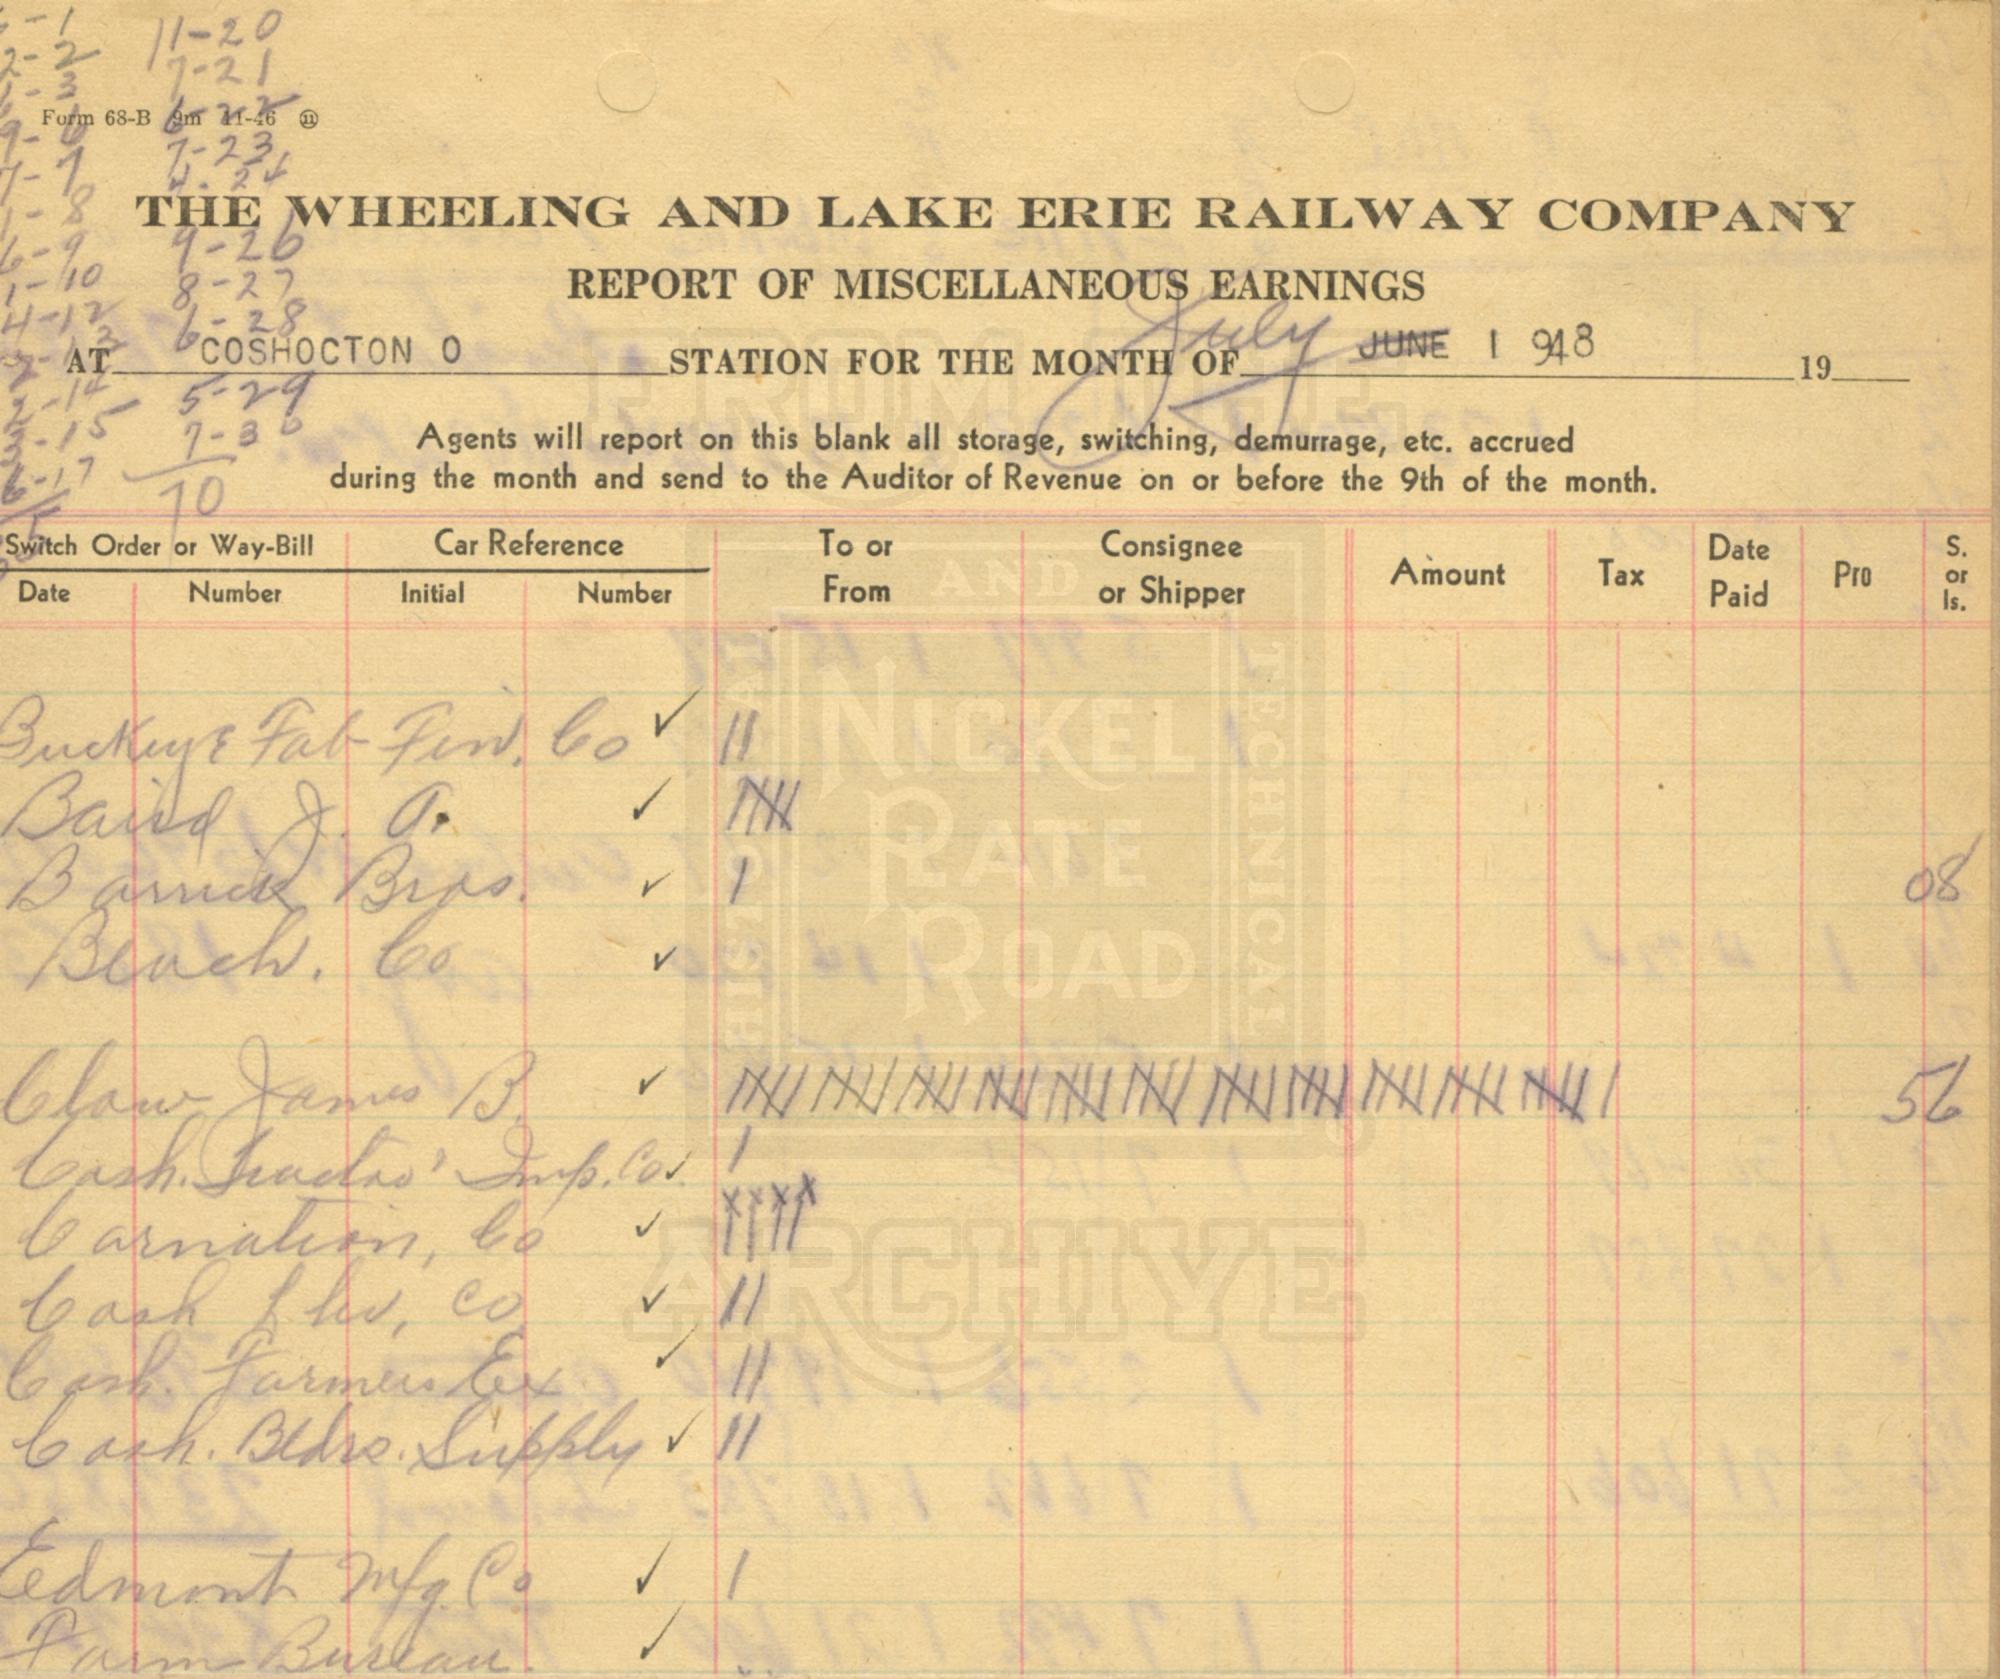 11-20
2-2 7-21
3 6-22
Form 68-B 9m 11-46 ⑪
7-23
7-7 4-24
1-8
THE WHEELING AND LAKE ERIE RAILWAY COMPANY
6-9 9-26
1-10 8-27
REPORT OF MISCELLANEOUS EARNINGS
4-12 6-28
AT COSHOCTON O STATION FOR THE MONTH OF July JUNE 1 948 19
2-14 5-29
3-15 7-30
Agents will report on this blank all storage, switching, demurrage, etc. accrued
during the month and send to the Auditor of Revenue on or before the 9th of the month.
6-17 70
Switch Order or Way-Bill Car Reference To or From Consignee or Shipper Amount Tax Date Paid Pro S. or Is.
Date Number Initial Number
Buckeye Fab Fin. Co ✓ II
Baird J. A. ✓
Barrick Bros. ✓ I 08
Beach. Co ✓
Claw James B. ✓ 56
Cosh. Imp. Co. ✓ I
Carnation, Co ✓
Cosh Co ✓ II
Cosh. Farmers Ex ✓ II
Cosh. Bldrs. Supply ✓ II
Edmont Mfg. Co ✓ I
Farm Bureau. ✓
FROM THE
HISTORICAL AND TECHNICAL
NICKEL
PLATE
ROAD
ARCHIVE